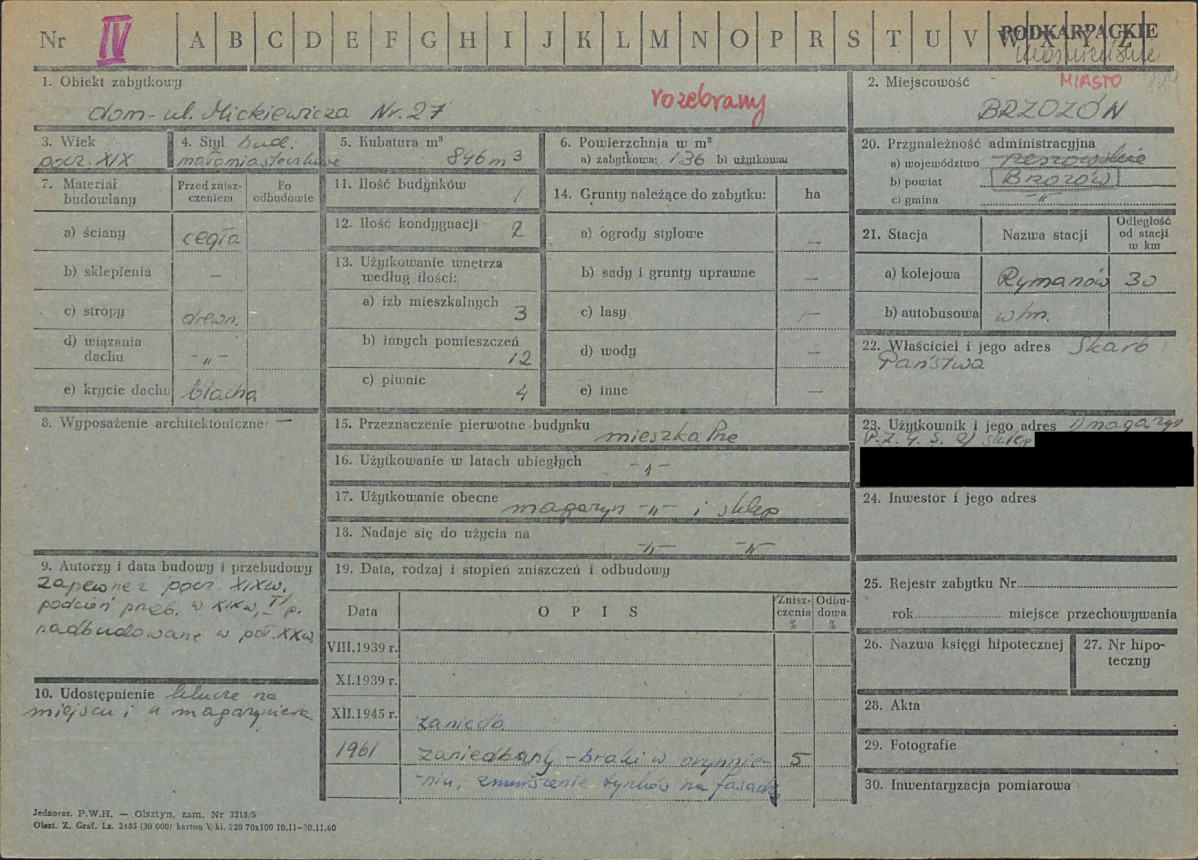 Nr IV A B C D E F G H I J K L M N O P R S T U V W X Y Z
PODKARPACKIE
1. Obiekt zabytkowy
dom - ul. Mickiewicza Nr. 27
rozebrany
2. Miejscowość MIASTO
BRZOZÓW
3. Wiek
pocz. XIX
4. Styl bud.
małomiasteczkowe
5. Kubatura m³
846 m³
6. Powierzchnia w m²
a) zabytkowa: 136 b) użytkowa:
20. Przynależność administracyjna
a) województwo rzeszowskie
b) powiat Brzozów
c) gmina -"-
7. Materiał budowlany
Przed zniszczeniem
Po odbudowie
a) ściany cegła
b) sklepienia —
c) stropy drewn.
d) wiązania dachu -"-
e) krycie dachu blacha
11. Ilość budynków 1
12. Ilość kondygnacji 2
13. Użytkowanie wnętrza według ilości:
a) izb mieszkalnych 3
b) innych pomieszczeń 12
c) piwnic 4
14. Grunty należące do zabytku: ha
a) ogrody stylowe —
b) sady i grunty uprawne —
c) lasy —
d) wody —
e) inne —
21. Stacja
Nazwa stacji
Odległość od stacji w km
a) kolejowa Rymanów 30
b) autobusowa w/m.
22. Właściciel i jego adres Skarb
Państwa
8. Wyposażenie architektoniczne: —
15. Przeznaczenie pierwotne budynku
mieszkalne
16. Użytkowanie w latach ubiegłych
-"-
17. Użytkowanie obecne
magazyn -"- i sklep
18. Nadaje się do użycia na
-"- -"-
23. Użytkownik i jego adres 1) magazyn
P.Z.G.S. 2) sklep
24. Inwestor i jego adres
9. Autorzy i data budowy i przebudowy
zapewne z pocz. XIXw.
podcień przeb. w XIXw, I p.
nadbudowane w poł. XXw.
10. Udostępnienie klucze na
miejscu i u magazyniera
19. Data, rodzaj i stopień zniszczeń i odbudowy
Data
OPIS
Zniszczenia %
Odbudowa %
VIII.1939 r.
XI.1939 r.
XII.1945 r. zaniedb.
1961 zaniedbany - braki w orynnie- 5
-niu, zmurszenie tynków na fasadzie
25. Rejestr zabytku Nr
rok miejsce przechowywania
26. Nazwa księgi hipotecznej
27. Nr hipoteczny
28. Akta
29. Fotografie
30. Inwentaryzacja pomiarowa
Jednoraz. P.W.H. — Olsztyn, zam. Nr 3218/S
Olszt. Z. Graf. Lz. 2485 (30 000) karton V kl. 220 70x100 10.11—30.11.60